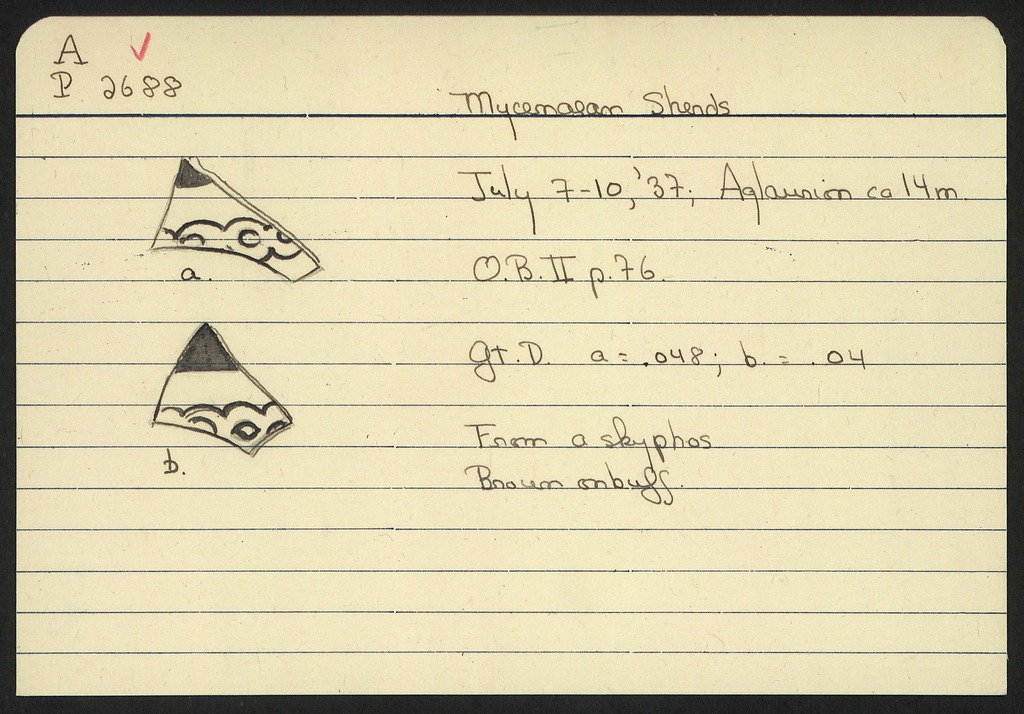 A ✓
P 2688
Mycenaean Sherds
July 7-10, '37; Aglaurion ca 14m.
a.
O.B. II p. 76.
Gt. D. a = .048; b. = .04
From a skyphos
b.
Brown on buff.